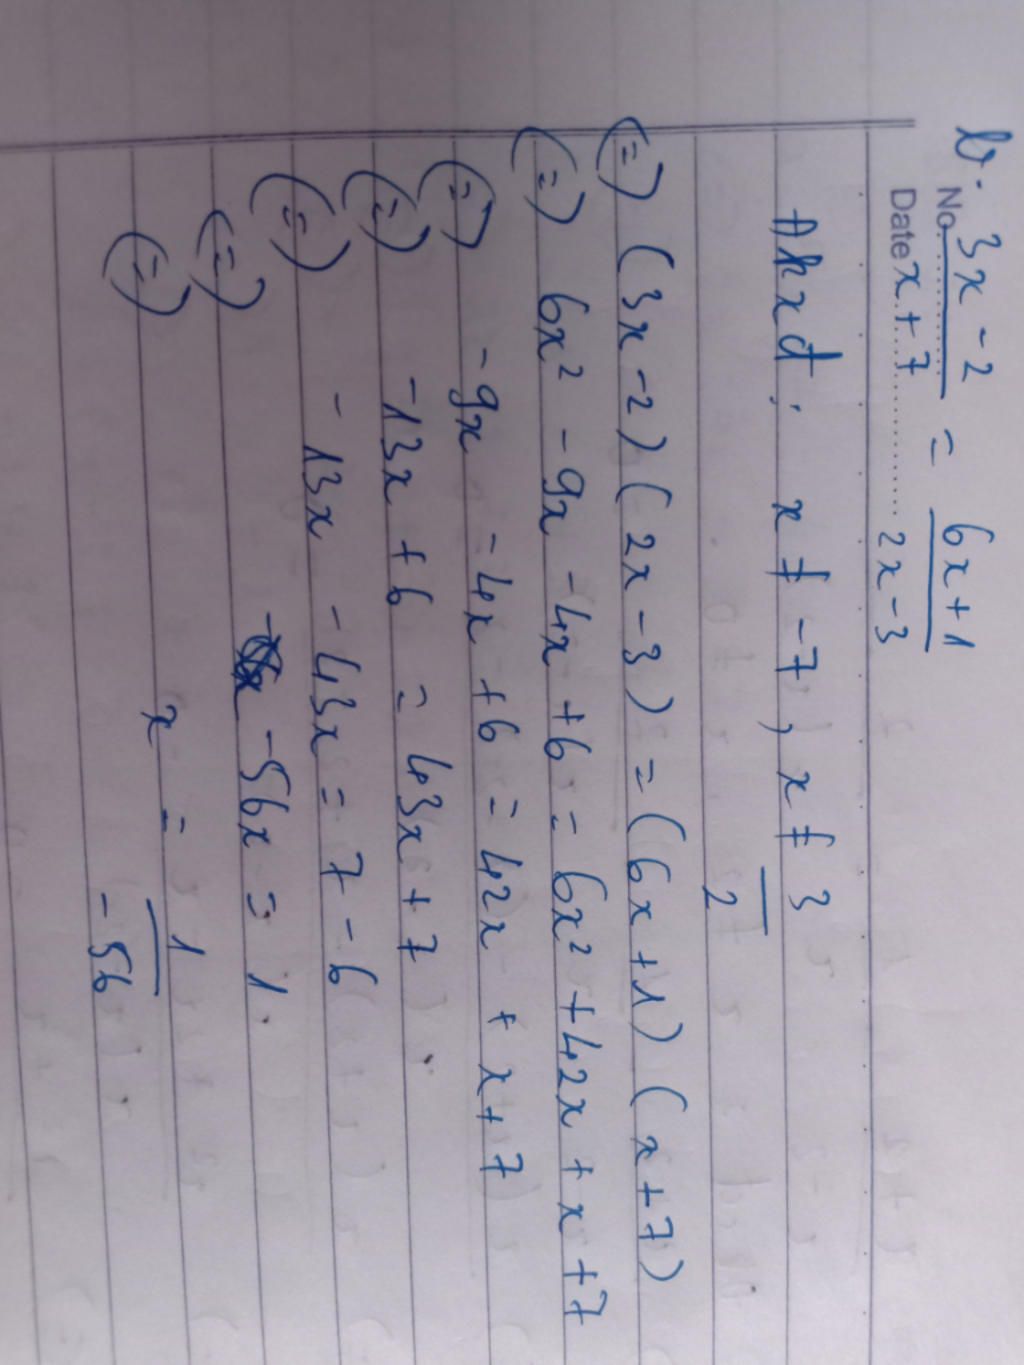 b. 3x - 2 / x + 7 = 6x + 1 / 2x - 3
No.
Date
Đkxđ : x ≠ -7, x ≠ 3/2
(=) (3x - 2) (2x - 3) = (6x + 1) (x + 7)
(=) 6x² - 9x - 4x + 6 = 6x² + 42x + x + 7
(=) - 9x - 4x + 6 = 42x + x + 7
(=) -13x + 6 = 43x + 7
(=) - 13x - 43x = 7 - 6
(=) - 56x = 1.
(=) x = 1 / - 56